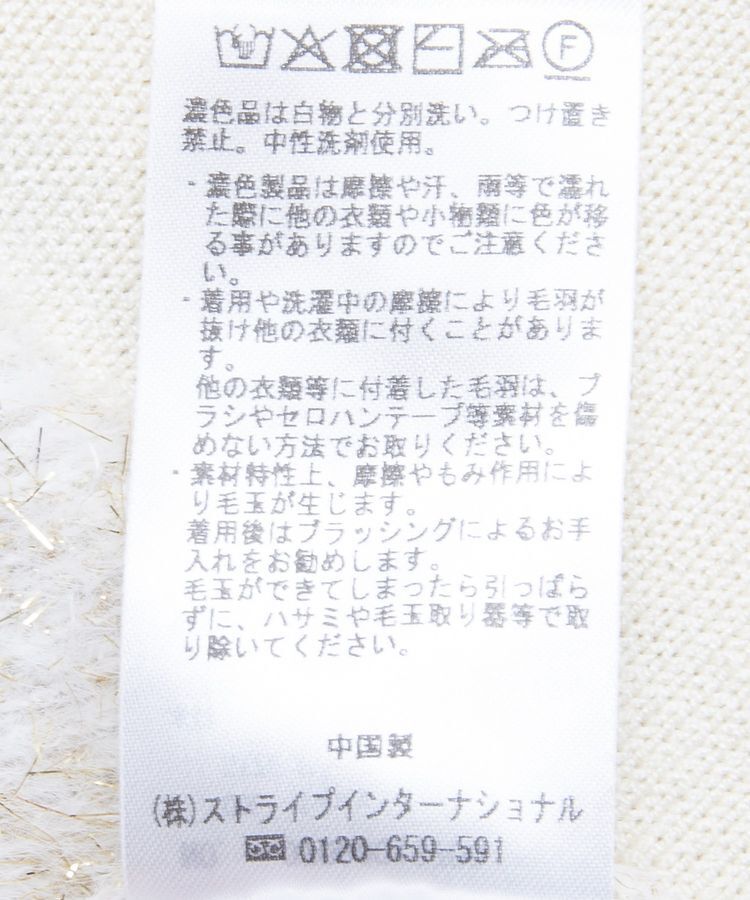 F
濃色品は白物と分別洗い。つけ置き
禁止。中性洗剤使用。
・濃色製品は摩擦や汗、雨等で濡れ
た際に他の衣類や小物類に色が移
る事がありますのでご注意くださ
い。
・着用や洗濯中の摩擦により毛羽が
抜け他の衣類に付くことがありま
す。
他の衣類等に付着した毛羽は、ブ
ラシやセロハンテープ等素材を傷
めない方法でお取りください。
・素材特性上、摩擦やもみ作用によ
り毛玉が生じます。
着用後はブラッシングによるお手
入れをお勧めします。
毛玉ができてしまったら引っぱら
ずに、ハサミや毛玉取り器等で取
り除いてください。
中国製
(株)ストライプインターナショナル
0120-659-591